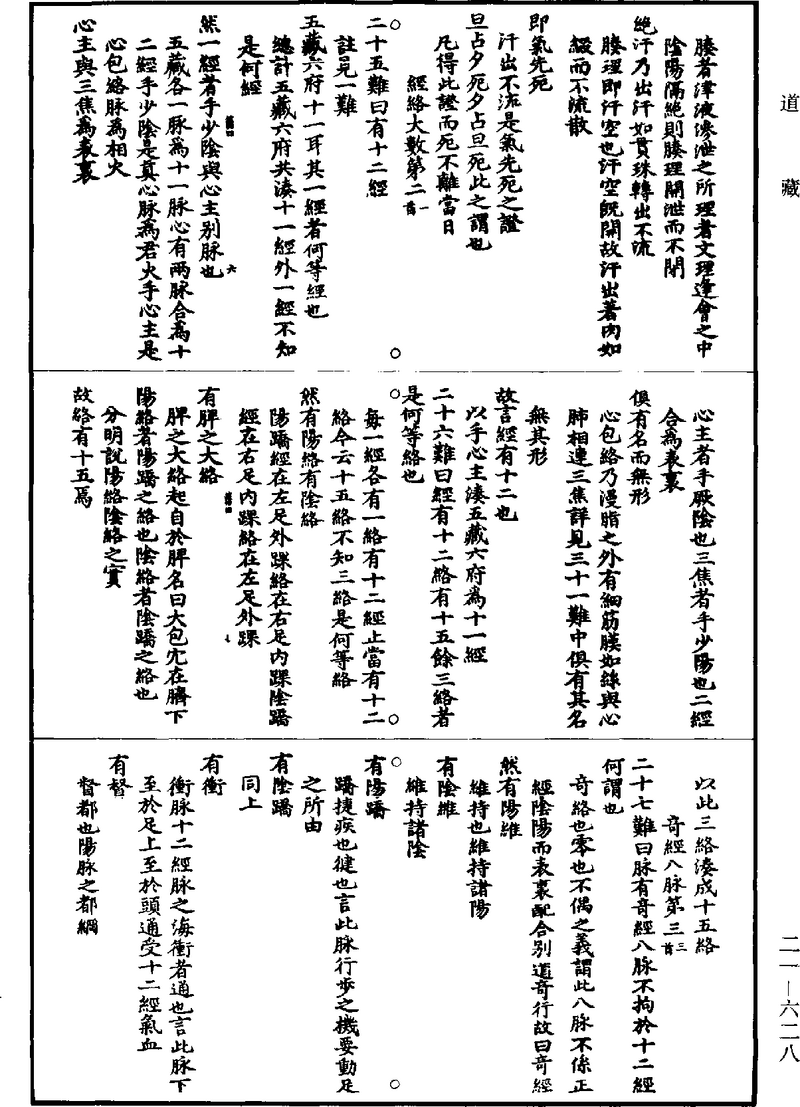 道藏
腠者津液滲泄之所理者文理逢會之中
陰陽隔絶則腠理開泄而不閉
絶汗乃出汗如貫珠轉出不流
腠理即汗空也汗空既開故汗出著肉如
綴而不流散
即氣先死
汗出不流是氣先死之證
旦占夕死夕占旦死此之謂也
凡得此證而死不離當日
經絡大數第二一首
二十五難曰有十二經
註見一難
五藏六府十一耳其一經者何等經也
總計五藏六府共湊十一經外一經不知
是何經
然一經者手少陰與心主别脉也
五藏各一脉為十一脉心有兩脉合為十
二經手少陰是真心脉為君火手心主是
心包絡脉為相火
心主與三焦為表裏
心主者手厥陰也三焦者手少陽也二經
合為表裏
俱有名而無形
心包絡乃漫脂之外有細筋膜如絲與心
肺相連三焦詳見三十一難中俱有其名
無其形
故言經有十二也
以手心主湊五藏六府為十一經
二十六難曰經有十二絡有十五餘三絡者
是何等絡也
每一經各有一絡有十二經止當有十二
絡今云十五絡不知三絡是何等絡
然有陽絡有陰絡
陽蹻經在左足外踝絡在右足内踝陰蹻
經在右足内踝絡在左足外踝
有脾之大絡
脾之大絡起自於脾名曰大包穴在臍下
陽絡者陽蹻之絡也陰絡者陰蹻之絡也
分明説陽絡陰絡之實
故絡有十五焉
以此三絡湊成十五絡
奇經八脉第三三首
二十七難曰脉有奇經八脉不拘於十二經
何謂也
奇絡也零也不偶之義謂此八脉不係正
經陰陽而表裏配合别道奇行故曰奇經
然有陽維
維持也維持諸陽
有陰維
維持諸陰
有陽蹻
蹻捷疾也健也言此脉行步之機要動足
之所由
有陰蹻
同上
有衝
衝脉十二經脉之海衝者通也言此脉下
至於足上至於頭通受十二經氣血
有督
督都也陽脉之都綱
二一—六二八